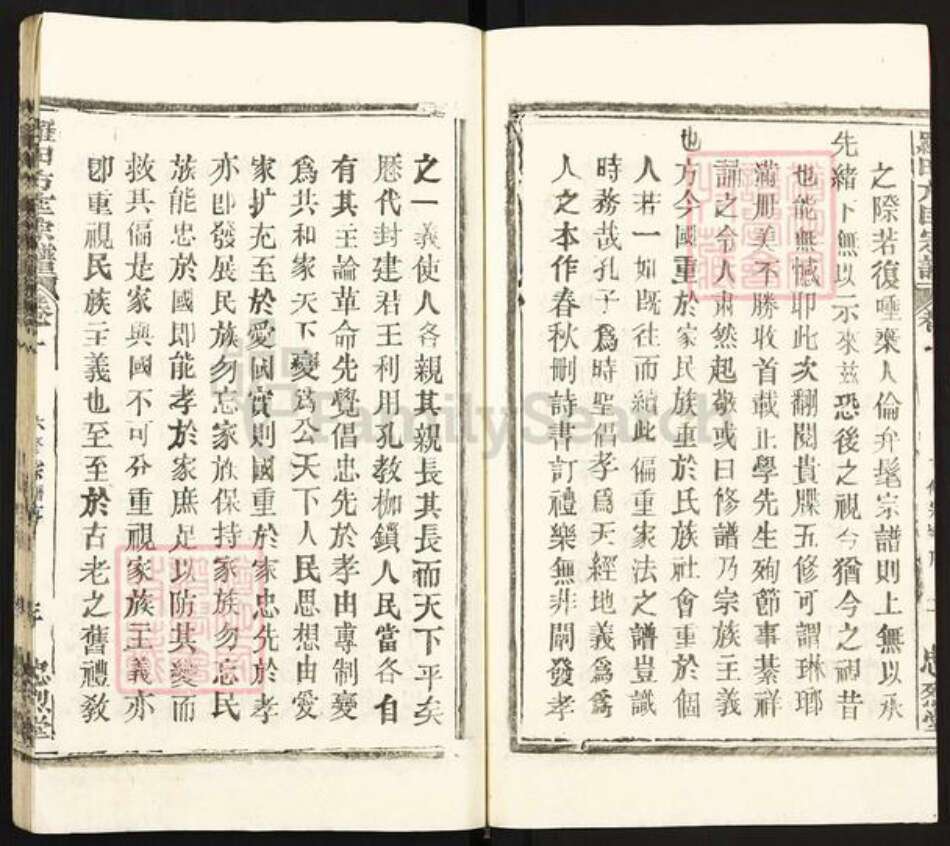 之際若復唾棄人倫弁髦宗譜則上無以承
先緒下無以示來茲恐後之視今猶今之視昔
也能無憾耶此次翻閱貴牒五修可謂琳瑯
滿册美不勝收首載正學先生殉節事綦祥
誦之令人肅然起敬或曰修譜乃宗族主義
也方今國重於家民族重於氏族社會重於個
人若一如既往而續此偏重家法之譜豈識
時務哉孔子爲時聖倡孝爲天經地義爲爲
人之本作春秋刪詩書訂禮樂無非闡發孝
之一義使人各親其親長其長而天下平矣
歷代封建君王利用孔教枷鎖人民當各自
有其主論革命先覺倡忠先於孝由專制變
爲共和家天下變爲公天下人民思想由愛
家扩充至於愛國實則國重於家忠先於孝
亦卽發展民族勿忘家族保持家族勿忘民
族能忠於國即能孝於家庶足以防其變而
救其偏是家與國不可分重視家族主義亦
卽重視民族主義也至至於古老之舊禮敎
羅田方氏宗譜 卷一
忠烈堂
FamilySearch